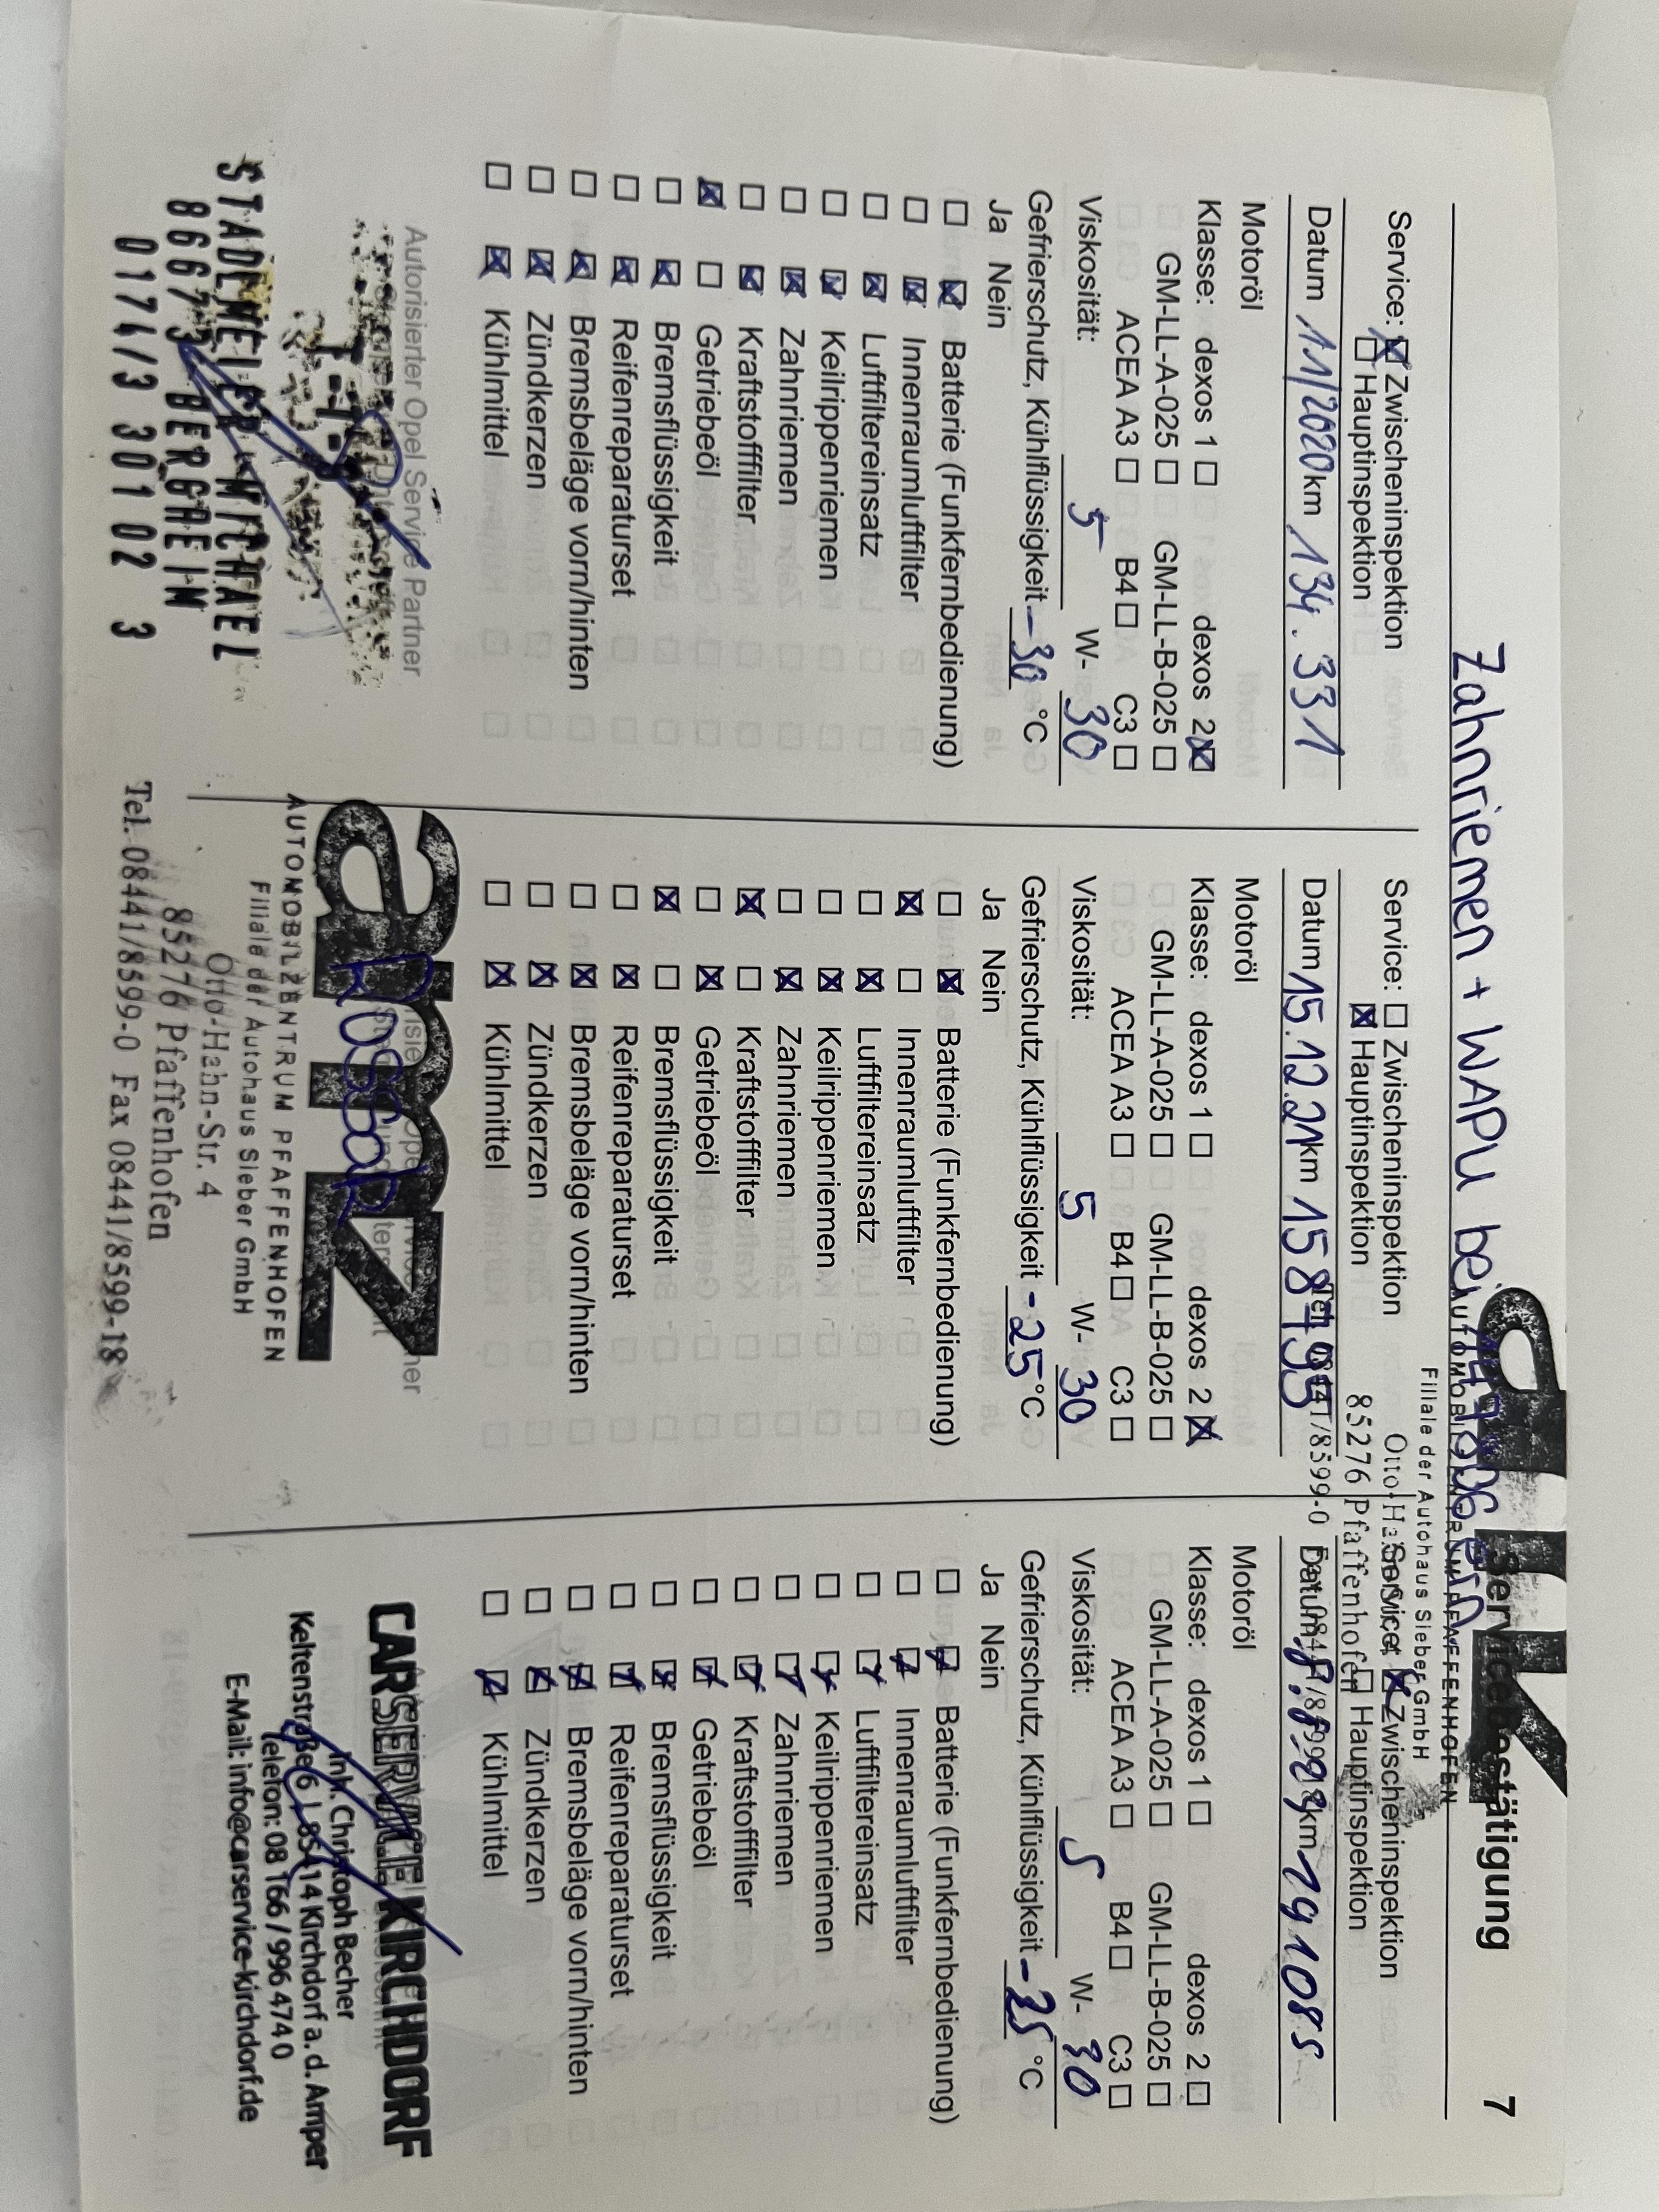 Servicebestätigung 7
Zahnriemen + WAPU bei
AUTOMOBILZENTRUM PFAFFENHOFEN
Filiale der Autohaus Sieber GmbH
85276 Pfaffenhofen
Tel. 08441/8599-0
Service: ☒ Zwischeninspektion
☐ Hauptinspektion
Datum 11/2020 km 134.331
Motoröl
Klasse: dexos 1 ☐ dexos 2 ☒
GM-LL-A-025 ☐ GM-LL-B-025 ☐
ACEA A3 ☐ B4 ☐ C3 ☐
Viskosität: 5 W- 30
Gefrierschutz, Kühlflüssigkeit -30 °C
Ja Nein
☐ ☒ Batterie (Funkfernbedienung)
☐ ☒ Innenraumluftfilter
☐ ☒ Luftfiltereinsatz
☐ ☒ Keilrippenriemen
☐ ☒ Zahnriemen
☐ ☒ Kraftstofffilter
☒ ☐ Getriebeöl
☐ ☒ Bremsflüssigkeit
☐ ☒ Reifenreparaturset
☐ ☒ Bremsbeläge vorn/hinten
☐ ☒ Zündkerzen
☐ ☒ Kühlmittel
Autorisierter Opel Service Partner
STADLMEIER MICHAEL
86673 BERGHEIM
0174/3 301 02 3
Service: ☐ Zwischeninspektion
☒ Hauptinspektion
Datum 15.12.21 km
Motoröl
Klasse: dexos 1 ☐ dexos 2 ☒
GM-LL-A-025 ☐ GM-LL-B-025 ☐
ACEA A3 ☐ B4 ☐ C3 ☐
Viskosität: 5 W- 30
Gefrierschutz, Kühlflüssigkeit -25 °C
Ja Nein
☐ ☒ Batterie (Funkfernbedienung)
☒ ☐ Innenraumluftfilter
☐ ☒ Luftfiltereinsatz
☐ ☒ Keilrippenriemen
☐ ☒ Zahnriemen
☒ ☐ Kraftstofffilter
☐ ☒ Getriebeöl
☒ ☐ Bremsflüssigkeit
☐ ☒ Reifenreparaturset
☐ ☒ Bremsbeläge vorn/hinten
☐ ☒ Zündkerzen
☐ ☒ Kühlmittel
amz
AUTOMOBILZENTRUM PFAFFENHOFEN
Filiale der Autohaus Sieber GmbH
Otto-Hahn-Str. 4
85276 Pfaffenhofen
Tel. 08441/8599-0 Fax 08441/8599-18
Service: ☒ Zwischeninspektion
☐ Hauptinspektion
Datum km 191085
Motoröl
Klasse: dexos 1 ☐ dexos 2 ☐
GM-LL-A-025 ☐ GM-LL-B-025 ☐
ACEA A3 ☐ B4 ☐ C3 ☐
Viskosität: 5 W- 30
Gefrierschutz, Kühlflüssigkeit -25 °C
Ja Nein
☐ ☒ Batterie (Funkfernbedienung)
☐ ☒ Innenraumluftfilter
☐ ☒ Luftfiltereinsatz
☐ ☒ Keilrippenriemen
☐ ☒ Zahnriemen
☐ ☒ Kraftstofffilter
☐ ☒ Getriebeöl
☐ ☒ Bremsflüssigkeit
☐ ☒ Reifenreparaturset
☐ ☒ Bremsbeläge vorn/hinten
☐ ☒ Zündkerzen
☐ ☒ Kühlmittel
CARSERVICE KIRCHDORF
Inh. Christoph Becher
Keltenstraße 6 | 85414 Kirchdorf a. d. Amper
Telefon: 08 166 / 996 474 0
E-Mail: info@carservice-kirchdorf.de